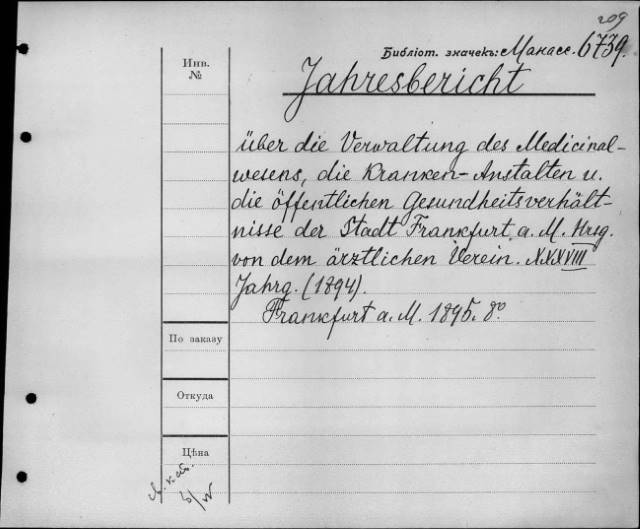 209
Библіот. значекъ: Манасс. 6739.
Инв.
№
Jahresbericht
über die Verwaltung des Medicinal-
wesens, die Kranken-Anstalten u.
die öffentlichen Gesundheitsverhält-
nisse der Stadt Frankfurt a. M. Hrsg.
von dem ärztlichen Verein. XXXVIII
Jahrg. (1894).
Frankfurt a. M. 1895. 8º.
По заказу
Откуда
Цѣна